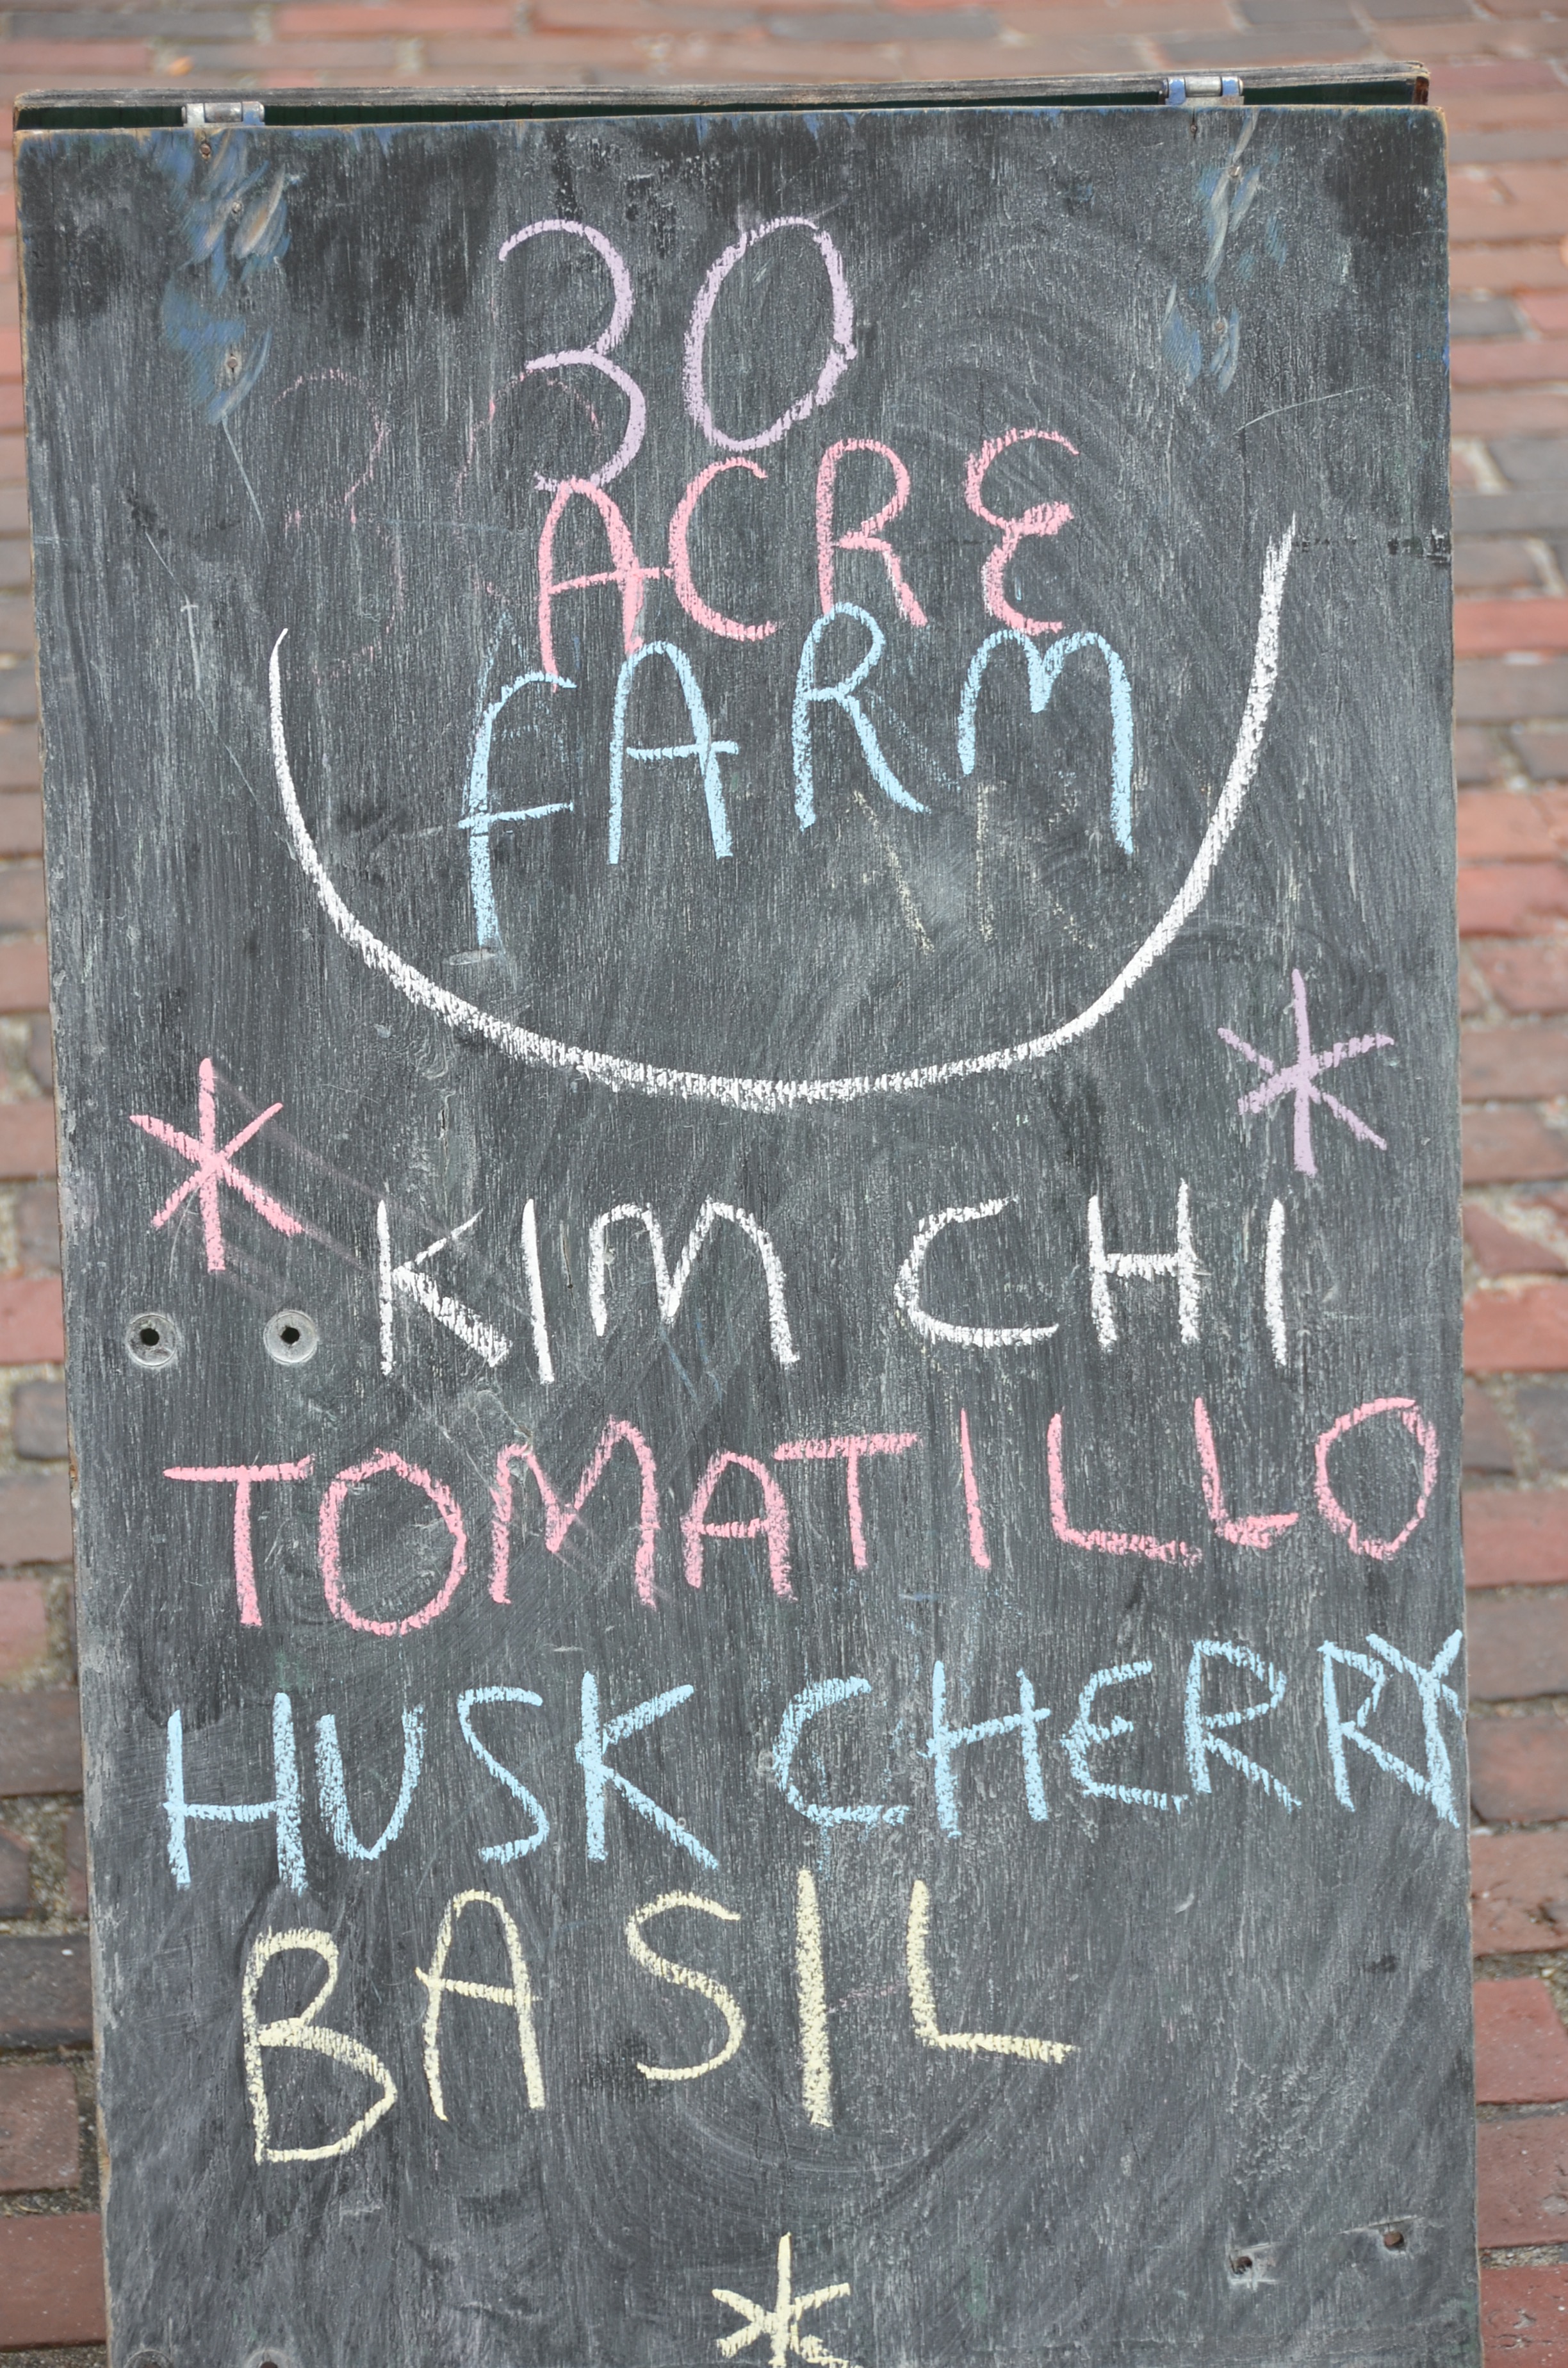 30
ACRE
FARM
* *
KIM CHI
TOMATILLO
HUSK CHERRY
BASIL
*